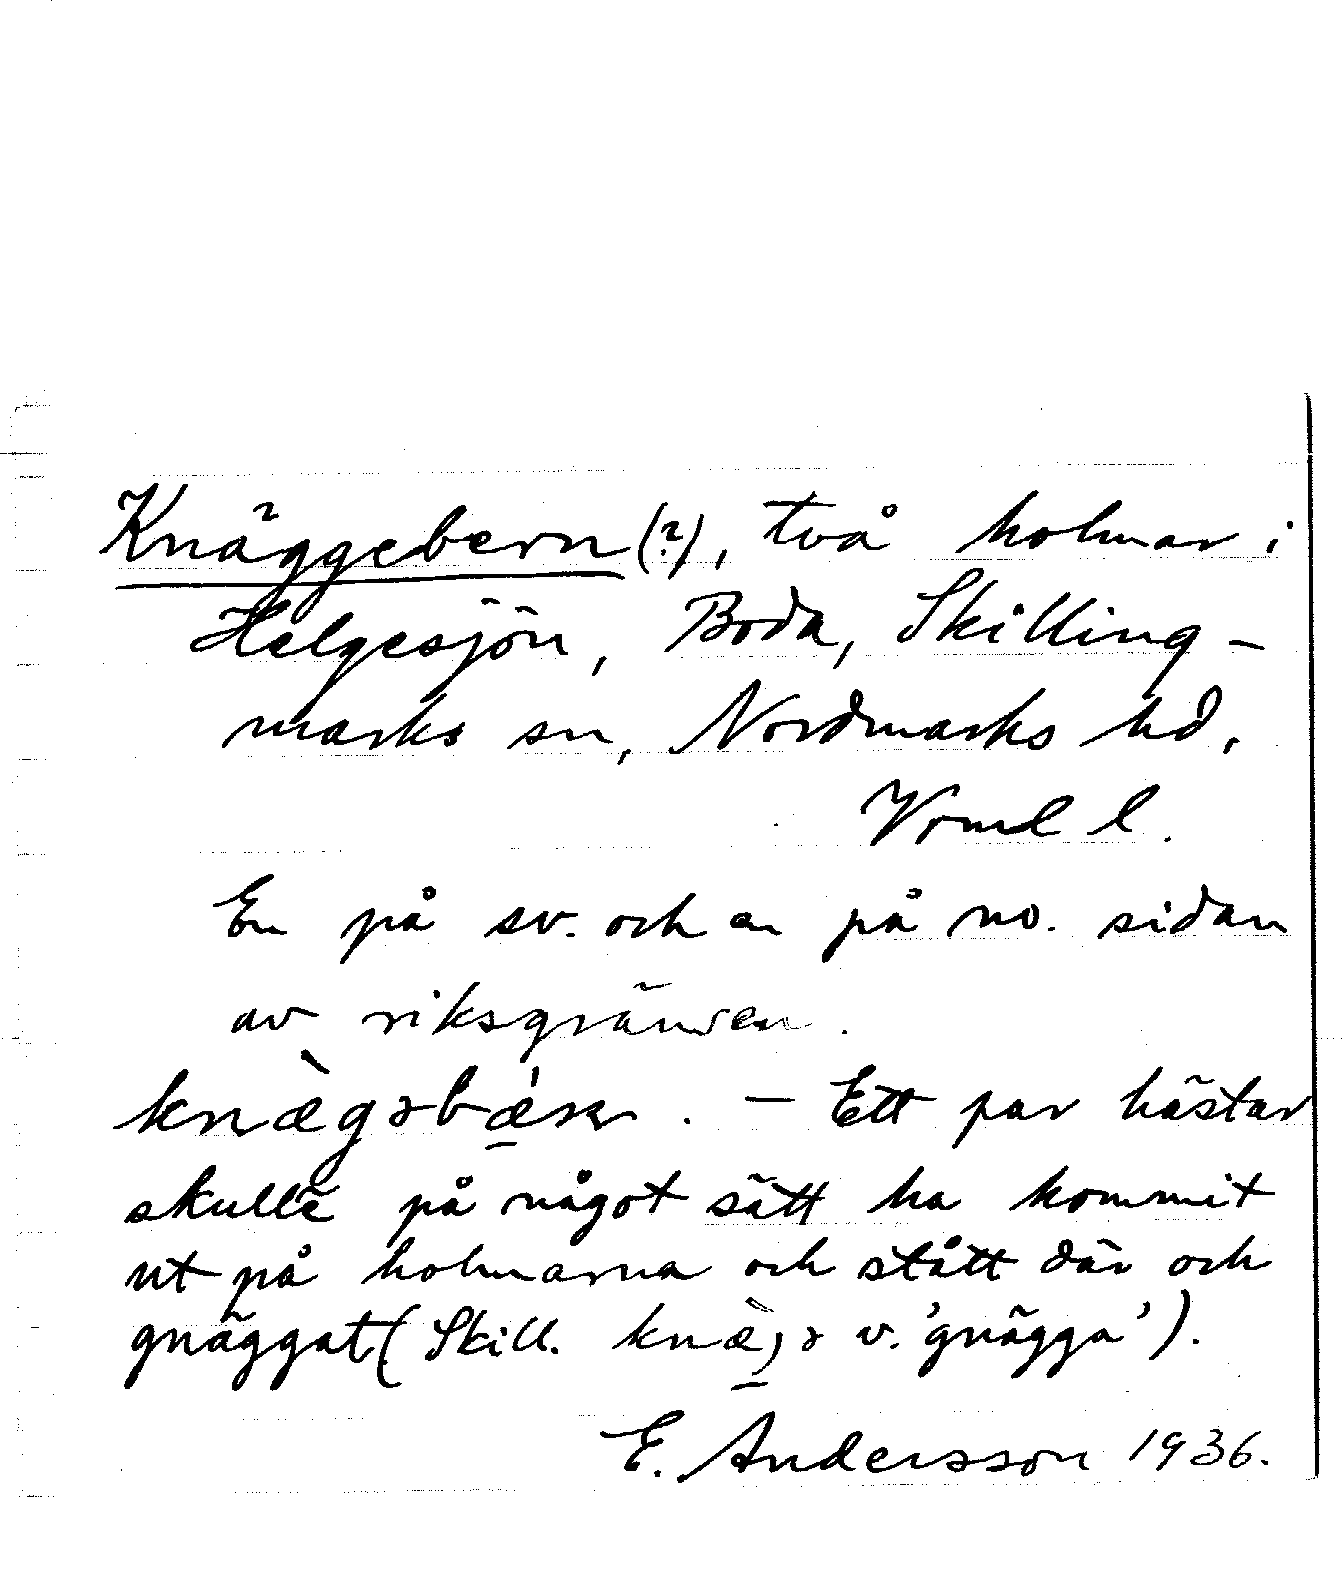 Knäggebern (?), två holmar i
Helgesjön, Boda, Skilling-
marks sn, Nordmarks hd,
Vrml l.
En på sv. och en på no. sidan
av riksgränsen.
. – Ett par hästar
skulle på något sätt ha kommit
ut på holmarna och stått där och
gnäggat (Skill. v. 'gnägga').
E. Andersson 1936.